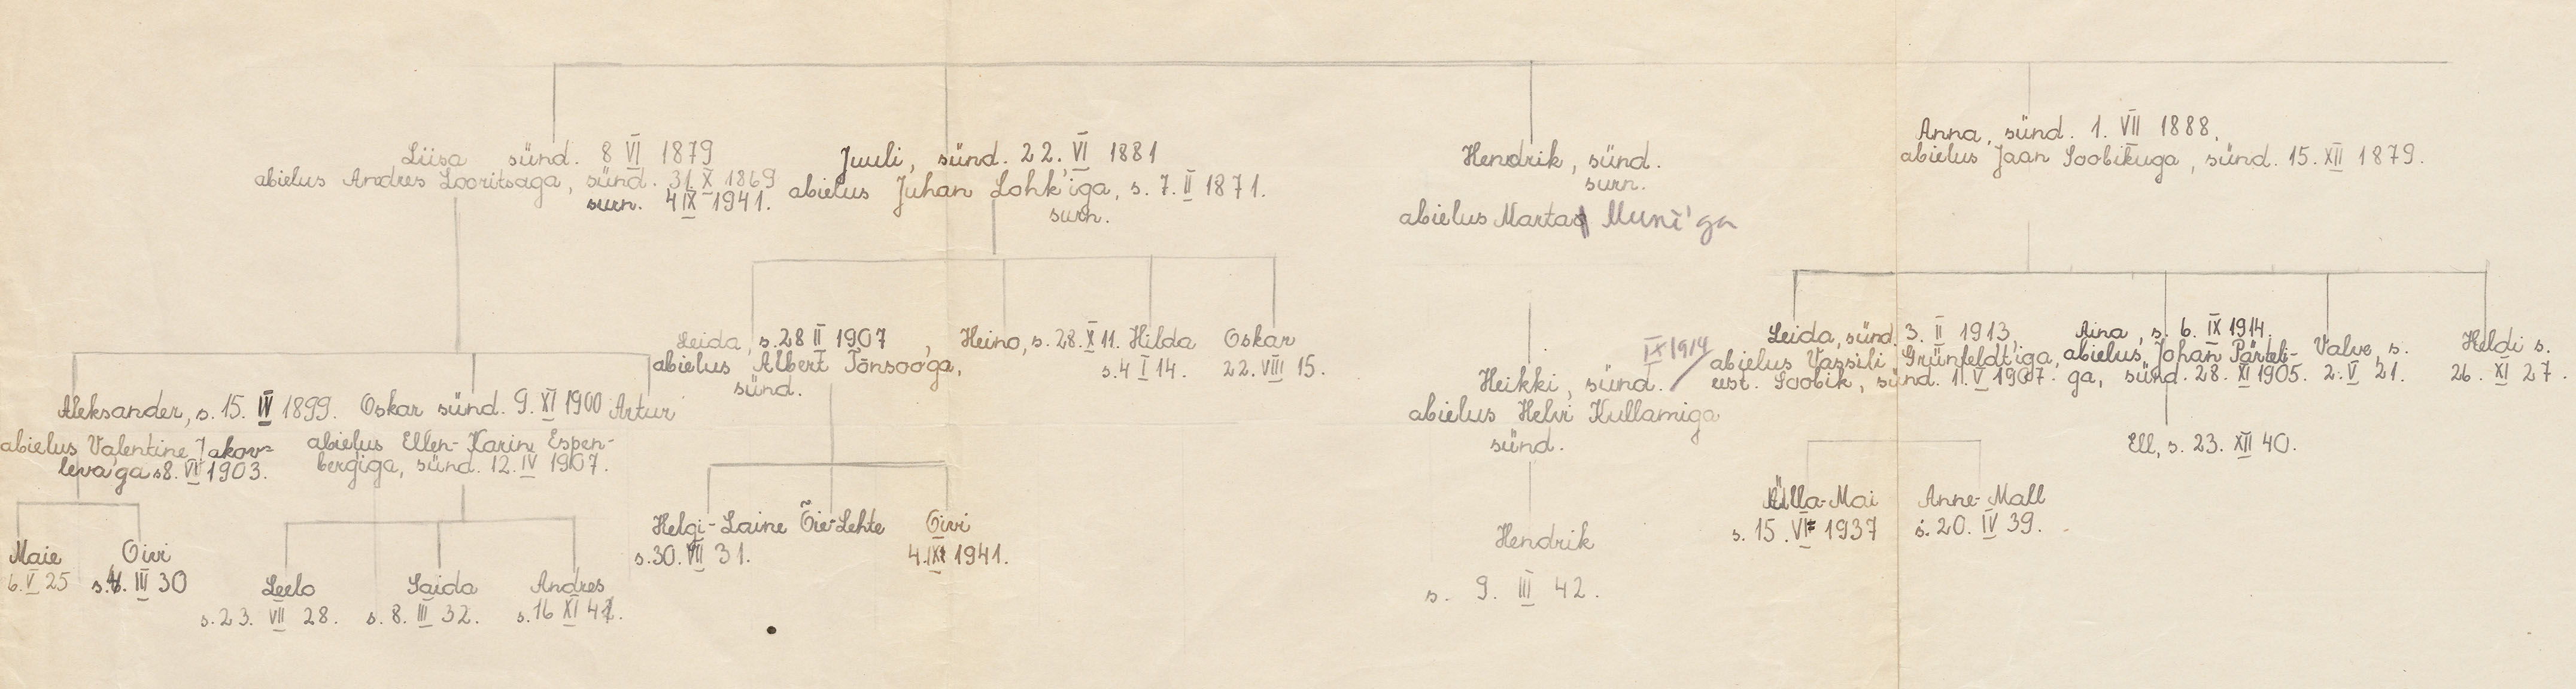 Liisa sünd. 8 VI 1879
abielus Andres Looritsaga, sünd. 31 X 1869
surn. 4 IX 1941.
Juuli, sünd. 22. VI 1881
abielus Juhan Lohk'iga, s. 7. II 1871.
surn.
Hendrik, sünd.
surn.
abielus Marta Muni'ga
Anna, sünd. 1. VII 1888.
abielus Jaan Soobikuga, sünd. 15. XII 1879.
Aleksander, s. 15. IV 1899.
abielus Valentine Jakov-
leva'ga s 8. VI 1903.
Oskar sünd. 9. XI 1900
abielus Ellen-Karin Espen-
bergiga, sünd. 12. IV 1907.
Artur
Leida, s. 28 II 1907,
abielus Albert Tõnsoo'ga,
sünd.
Heino, s. 28. X 11.
Hilda
s. 4 I 14.
Oskar
22. VIII 15.
Heikki, sünd. IX 1914
abielus Helvi Kullamiga
sünd.
Leida, sünd. 3. II 1913,
abielus Vassili Grünfeldt'iga,
eest. Soobik, sünd. 11. V 1907.
Aina, s. 6. IX 1914.
abielus Johan Pärteli-
ga, sünd. 28. XI 1905.
Valve, s.
2. V 21.
Heldi s.
26. XI 27.
Maie
6. V 25
Oivi
s. III 30
Leelo
s. 23. VII 28.
Saida
s. 8. III 32.
Andres
s. 16 XI
Helgi-Laine
s. 30. VII 31.
Õie-Lehte
Oivi
4. IX 1941.
Hendrik
s. 9. III 42.
Ülla-Mai
s. 15. VI 1937
Anne-Mall
s. 20. IV 39.
Ell, s. 23. XII 40.